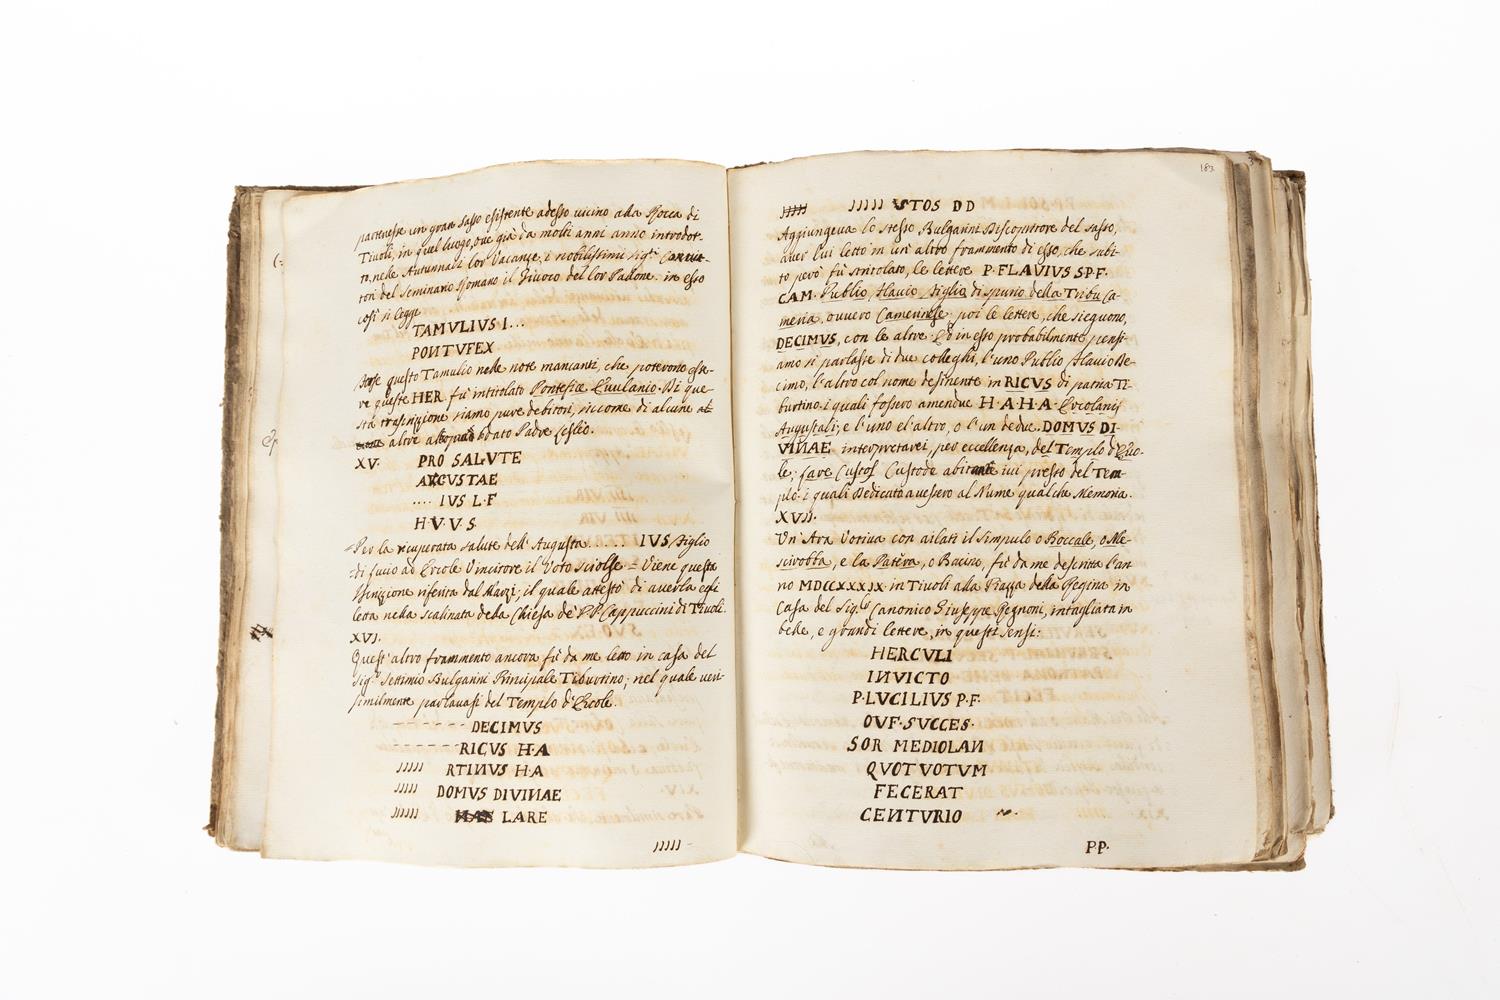 partenesse un gran sasso esistente adesso vicino alla Rocca di
Tivoli, in quel luogo, ove già da molti anni anno introdot-
to, nelle Autunnali lor Vacanze, i nobilissimi sig.ri Convit-
tori del Seminario Romano il Giuoco del lor Pallone. in esso
così si legge
TAMULIUS I...
PONTUFEX
Forse questo Tamulio nelle note mancanti, che potevono esse-
re queste HER. fu intitolato Pontefice Erculanio. Di que-
sta trascrizione siamo pure debitori, siccome di alcune al-
altre al lodato Padre Ceslio.
XV. PRO SALUTE
AUGUSTAE
.... IUS L·F
H·V·V·S
Per la ricuperata salute dell'Augusta...... IUS figlio
di Lucio ad Ercole Vincitore il Voto sciolse = Viene questa
Iscrizione riferita dal Marzi; il quale attestò di averla così
letta nella scalinata della Chiesa de' P.P. Cappuccini di Tivoli.
XVI.
Quest'altro frammento ancora fù da me letto in casa del
Sig.r Settimio Bulgarini Principale Tiburtino; nel quale veri-
similmente parlavasi del Templo d'Ercole
------- DECIMUS
------- RICUS H·A
///// RTINUS H·A
///// DOMUS DIVINAE
///// LARE
///// -
183
///// ///// STOS DD
Aggiungeva lo stesso Bulgarini Discopritore del sasso,
aver lui letto in un'altro frammento di esso, che subi-
to però fù stritolato, le lettere P·FLAVIUS SP·F.
CAM. Publio, Flavio, figlio di spurio della Tribu Ca-
meria, ovvero Camerinese poi le lettere, che sieguono,
DECIMUS, con le altre. Ed in esso probabilmente pensi-
amo si parlasse di due colleghi, l'uno Publio Flavio De-
cimo, l'altro col nome desinente in RICUS di patria Ti-
burtino. i quali fossero amendue H·A·H·A· Ercolanij
Augustali; e l'uno el'altro, o l'un de due. DOMUS DI-
VINAE interpretarei, per eccellenza, del Templo d'Erco-
le; Lare Custos Custode abitante ivi presso del Tem-
plo. i quali Dedicato avessero al Nume qualche Memoria.
XVII.
Un'Ara Votiva con ailati il Simpulo o Boccale, o Me-
scirobba, e la Patera, o Bacino, fù da me descritta l'an-
no MDCCXXXIX in Tivoli alla Piazza della Regina in
Casa del Sig.r Canonico Giuseppe Regnoni, intagliata in
belle, e grandi lettere, in questi sensi:
HERCULI
INVICTO
P·LUCILIUS P·F·
OUF·SUCCES·
SOR MEDIOLAN
QUOT VOTUM
FECERAT
CENTURIO
PP.